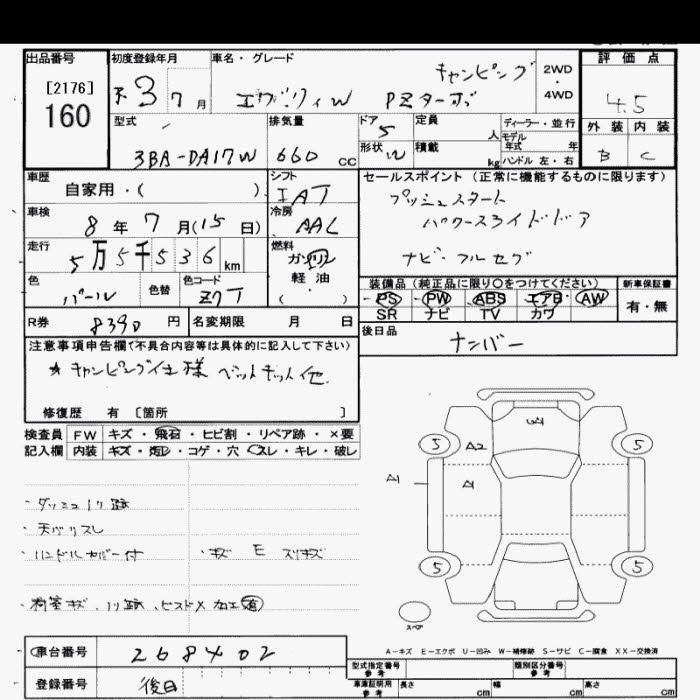 出品番号
[2176]
160
初度登録年月
3 7月
車名・グレード
エブリィW PZターボ
キャンピング
2WD
・
4WD
評価点
4.5
型式
3BA-DA17W
排気量
660 CC
ドア
5
形状
定員
人
積載
kg
ディーラー・並行
モデル
年式 年
ハンドル 左・右
外装 内装
B C
車歴
自家用・( )
シフト
IAT
車検
8年7月(15日)
冷房
AAC
走行
5万5千536km
燃料
ガソリン
軽油
( )
色
パール
色替
色コード
Z7T
セールスポイント(正常に機能するものに限ります)
プッシュスタート
パワースライドドア
ナビ・フルセグ
装備品(純正品に限り〇をつけてください)
PS PW ABS エアB AW
SR ナビ TV カワ
新車保証書
有・無
R券
8390円
名変期限 月 日
後日品
ナンバー
注意事項申告欄(不具合内容等は具体的に記入して下さい)
*キャンピング仕様 ベットキット他
修復歴 有 [箇所 ]
検査員 FW キズ・飛石・ヒビ割・リペア跡・×要
記入欄 内装 キズ・汚レ・コゲ・穴・スレ・キレ・破レ
・ダッシュノリ跡
・天バリスレ
・ハンドルカバー付 ・キズ E スリキズ
・荷室キズ、ノリ跡、ビスドメ加工有
G/1
5
A2
5
A1
A1
5
5
スペア
A-キズ E-エクボ U-凹み W-補修跡 S-サビ C-腐食 XX-交換済
車台番号
268402
登録番号
後日
型式指定番号
参考
類別区分番号
参考
車庫証明用
参考
長さ cm
幅 cm
高さ cm